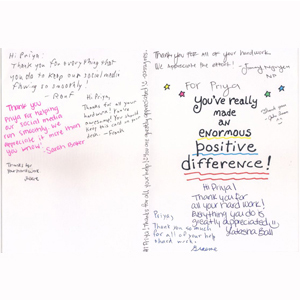 Hi Priya!
Thank you for everything that
you do to keep our social media
flowing so smoothly!
Hi Priya,
Thanks for all your
hard work! You're
awesome! You should
keep this card on your
desk.
Thank you
Priya for helping
our social media
run smoothly. We
appreciate it more than
you know!
Sarah
Thanks for
your hard work
Thank you for all of your hardwork.
We appreciate the
For Priya
You've really
made
an
enormous
positive
difference!
Thank you
Hi Priya!
Thank you for
all your hard work!
Everything you do is
greatly appreciated!
Ball
Priya,
Thank you so much
for all of your help
+ hard work.
Graeme
Hi Priya! Thanks for all your help!